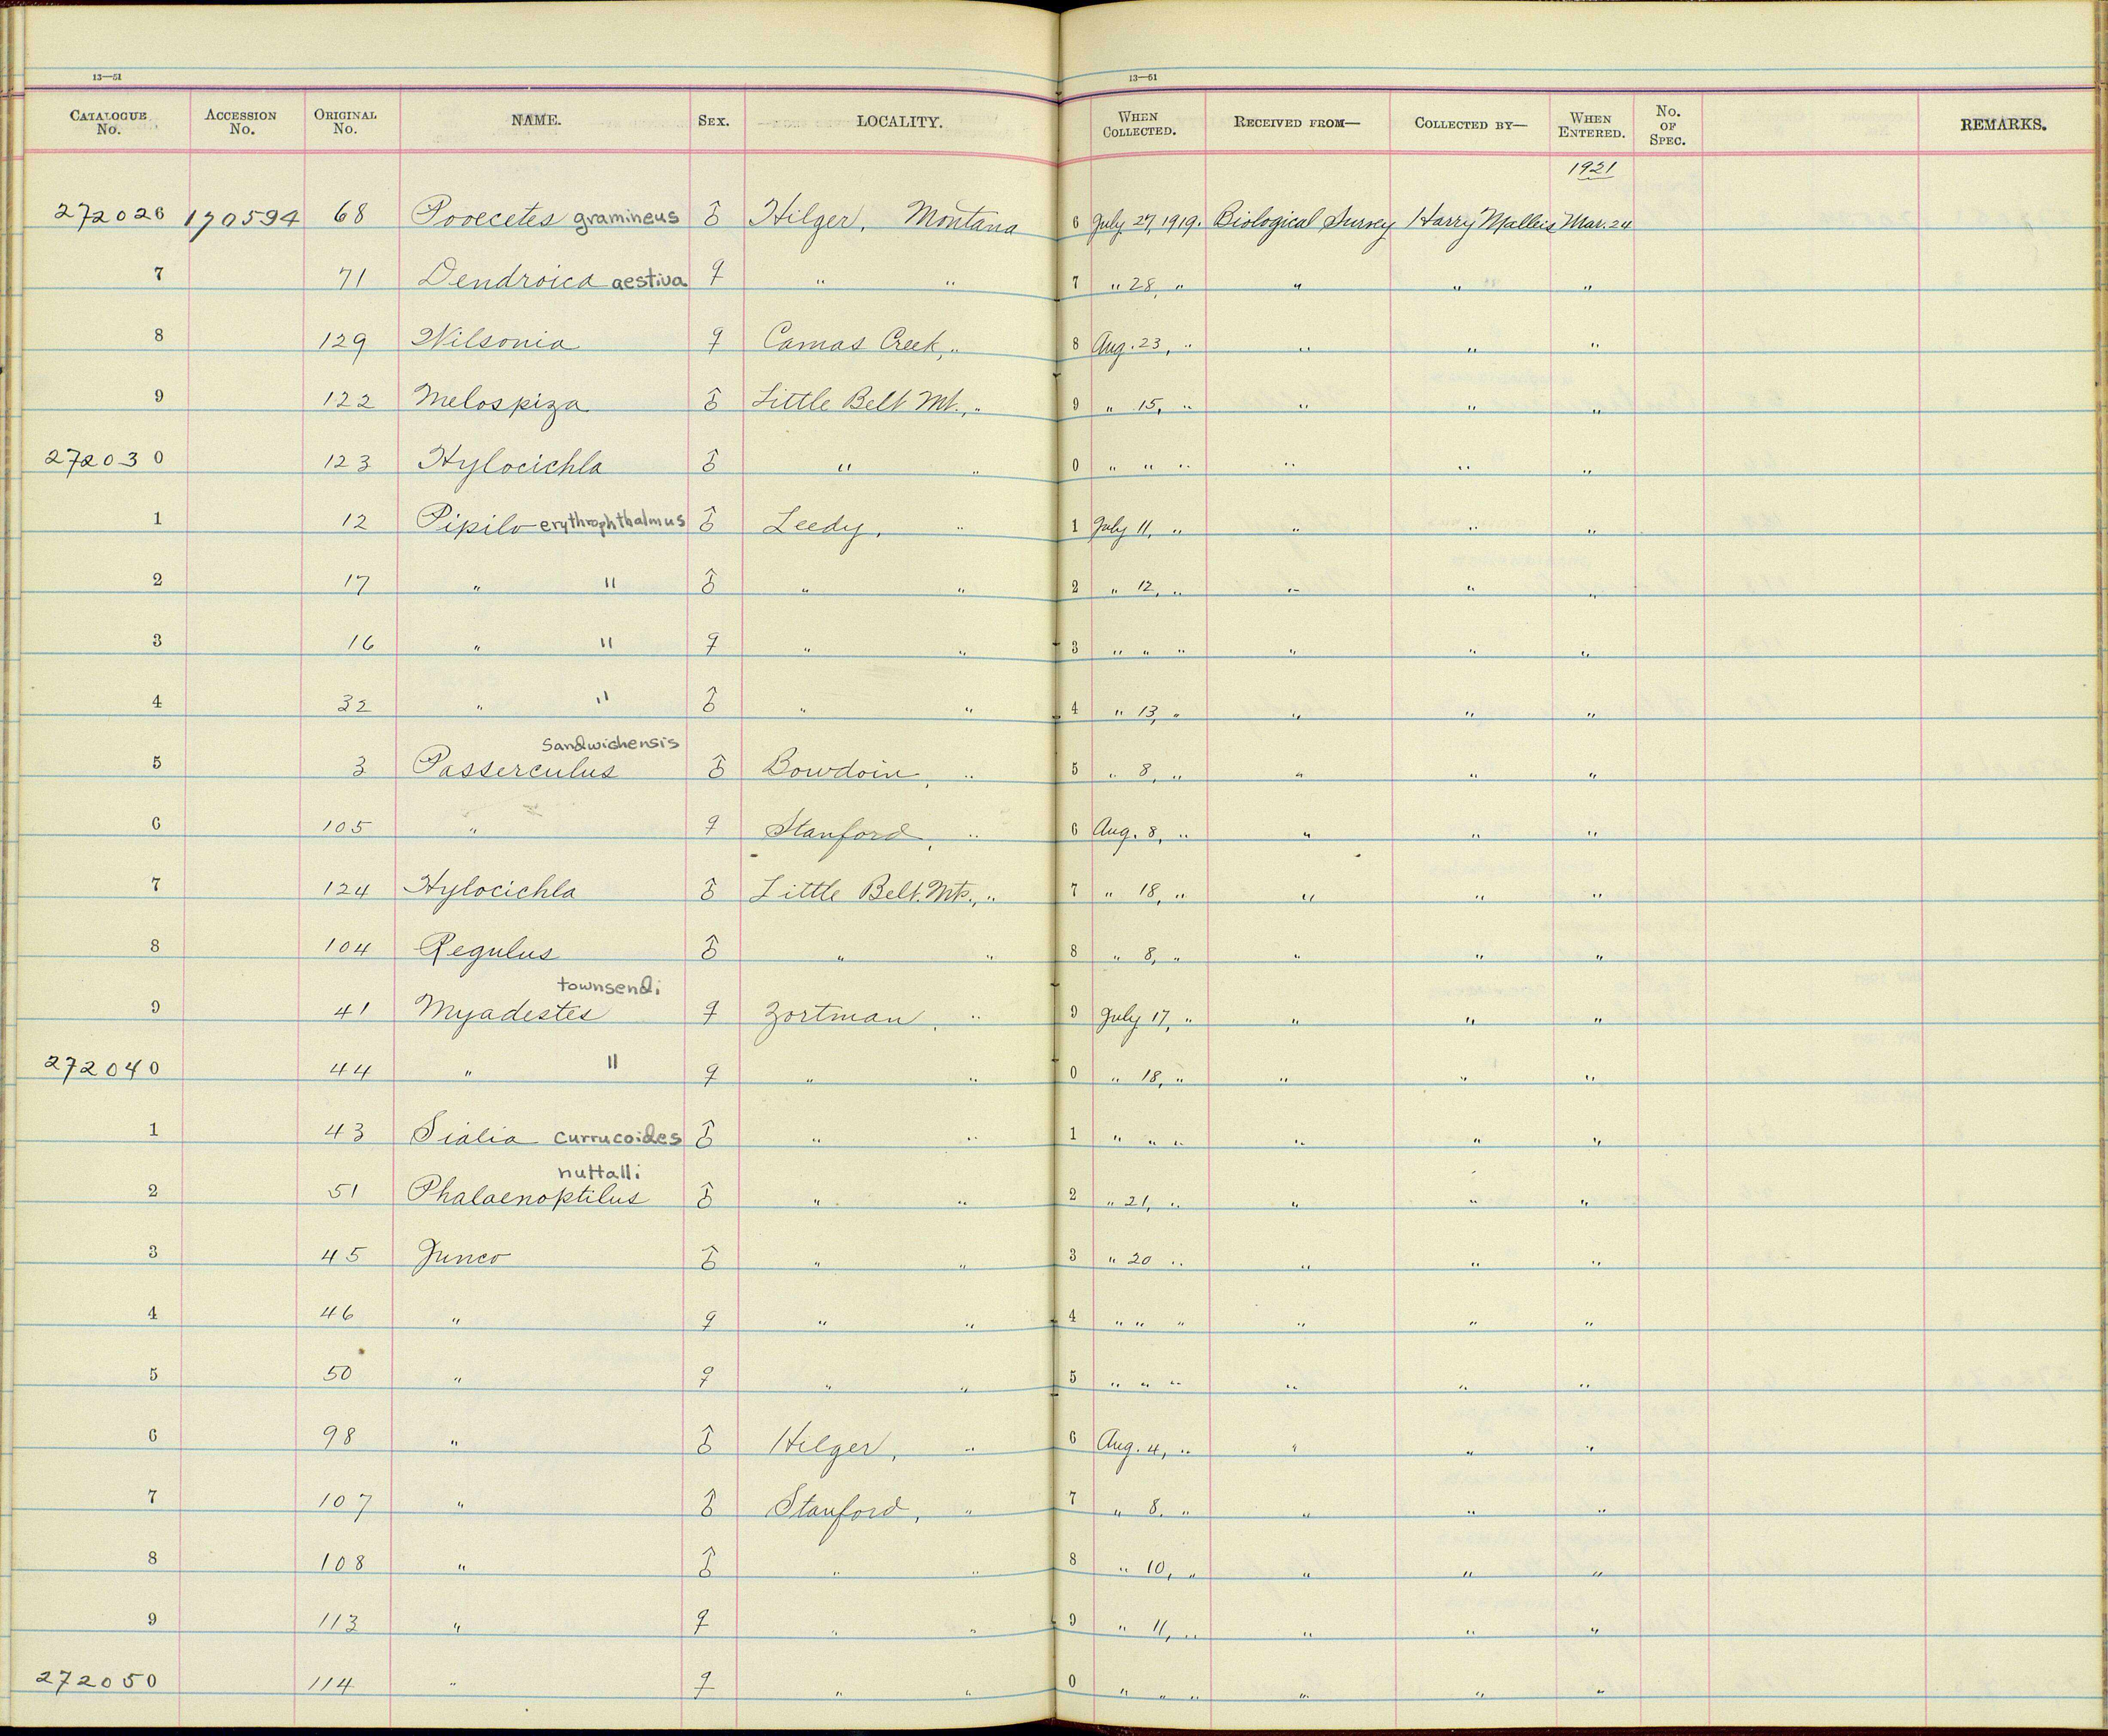 13—51 13—51
CATALOGUE No. ACCESSION No. ORIGINAL No. NAME. SEX. LOCALITY. WHEN COLLECTED. RECEIVED FROM— COLLECTED BY— WHEN ENTERED. No. OF SPEC. REMARKS.
1921
272026 170594 68 Pooecetes gramineus ♂ Hilger, Montana 6 July 27, 1919. Biological Survey Harry Malleis Mar. 24
7 71 Dendroica aestiva ♀ " " 7 " 28, " " " "
8 129 Wilsonia ♀ Camas Creek, " 8 Aug. 23, " " " "
9 122 Melospiza ♂ Little Belt Mt., " 9 " 15, " " " "
272030 123 Hylocichla ♂ " " 0 " " " " " "
1 12 Pipilo erythrophthalmus ♂ Leedy, " 1 July 11, " " " "
2 17 " " ♂ " " 2 " 12, " " " "
3 16 " " ♀ " " 3 " " " " " "
4 32 " " ♂ " " 4 " 13, " " " "
sandwichensis
5 3 Passerculus ♂ Bowdoin, " 5 " 8, " " " "
6 105 " ♀ Stanford, " 6 Aug. 8, " " " "
7 124 Hylocichla ♂ Little Belt. Mts., " 7 " 18, " " " "
8 104 Regulus ♂ " " 8 " 8, " " " "
townsendi
9 41 Myadestes ♀ Zortman, " 9 July 17, " " " "
272040 44 " " ♀ " " 0 " 18, " " " "
1 43 Sialia currucoides ♂ " " 1 " " " " " "
nuttalli
2 51 Phalaenoptilus ♂ " " 2 " 21, " " " "
3 45 Junco ♂ " " 3 " 20 " " " "
4 46 " ♀ " " 4 " " " " " "
5 50 " ♀ " " 5 " " " " " "
6 98 " ♂ Hilger, " 6 Aug. 4, " " " "
7 107 " ♂ Stanford, " 7 " 8. " " " "
8 108 " ♂ " " 8 " 10, " " " "
9 113 " ♀ " " 9 " 11, " " " "
272050 114 " ♀ " " 0 " " " " " "